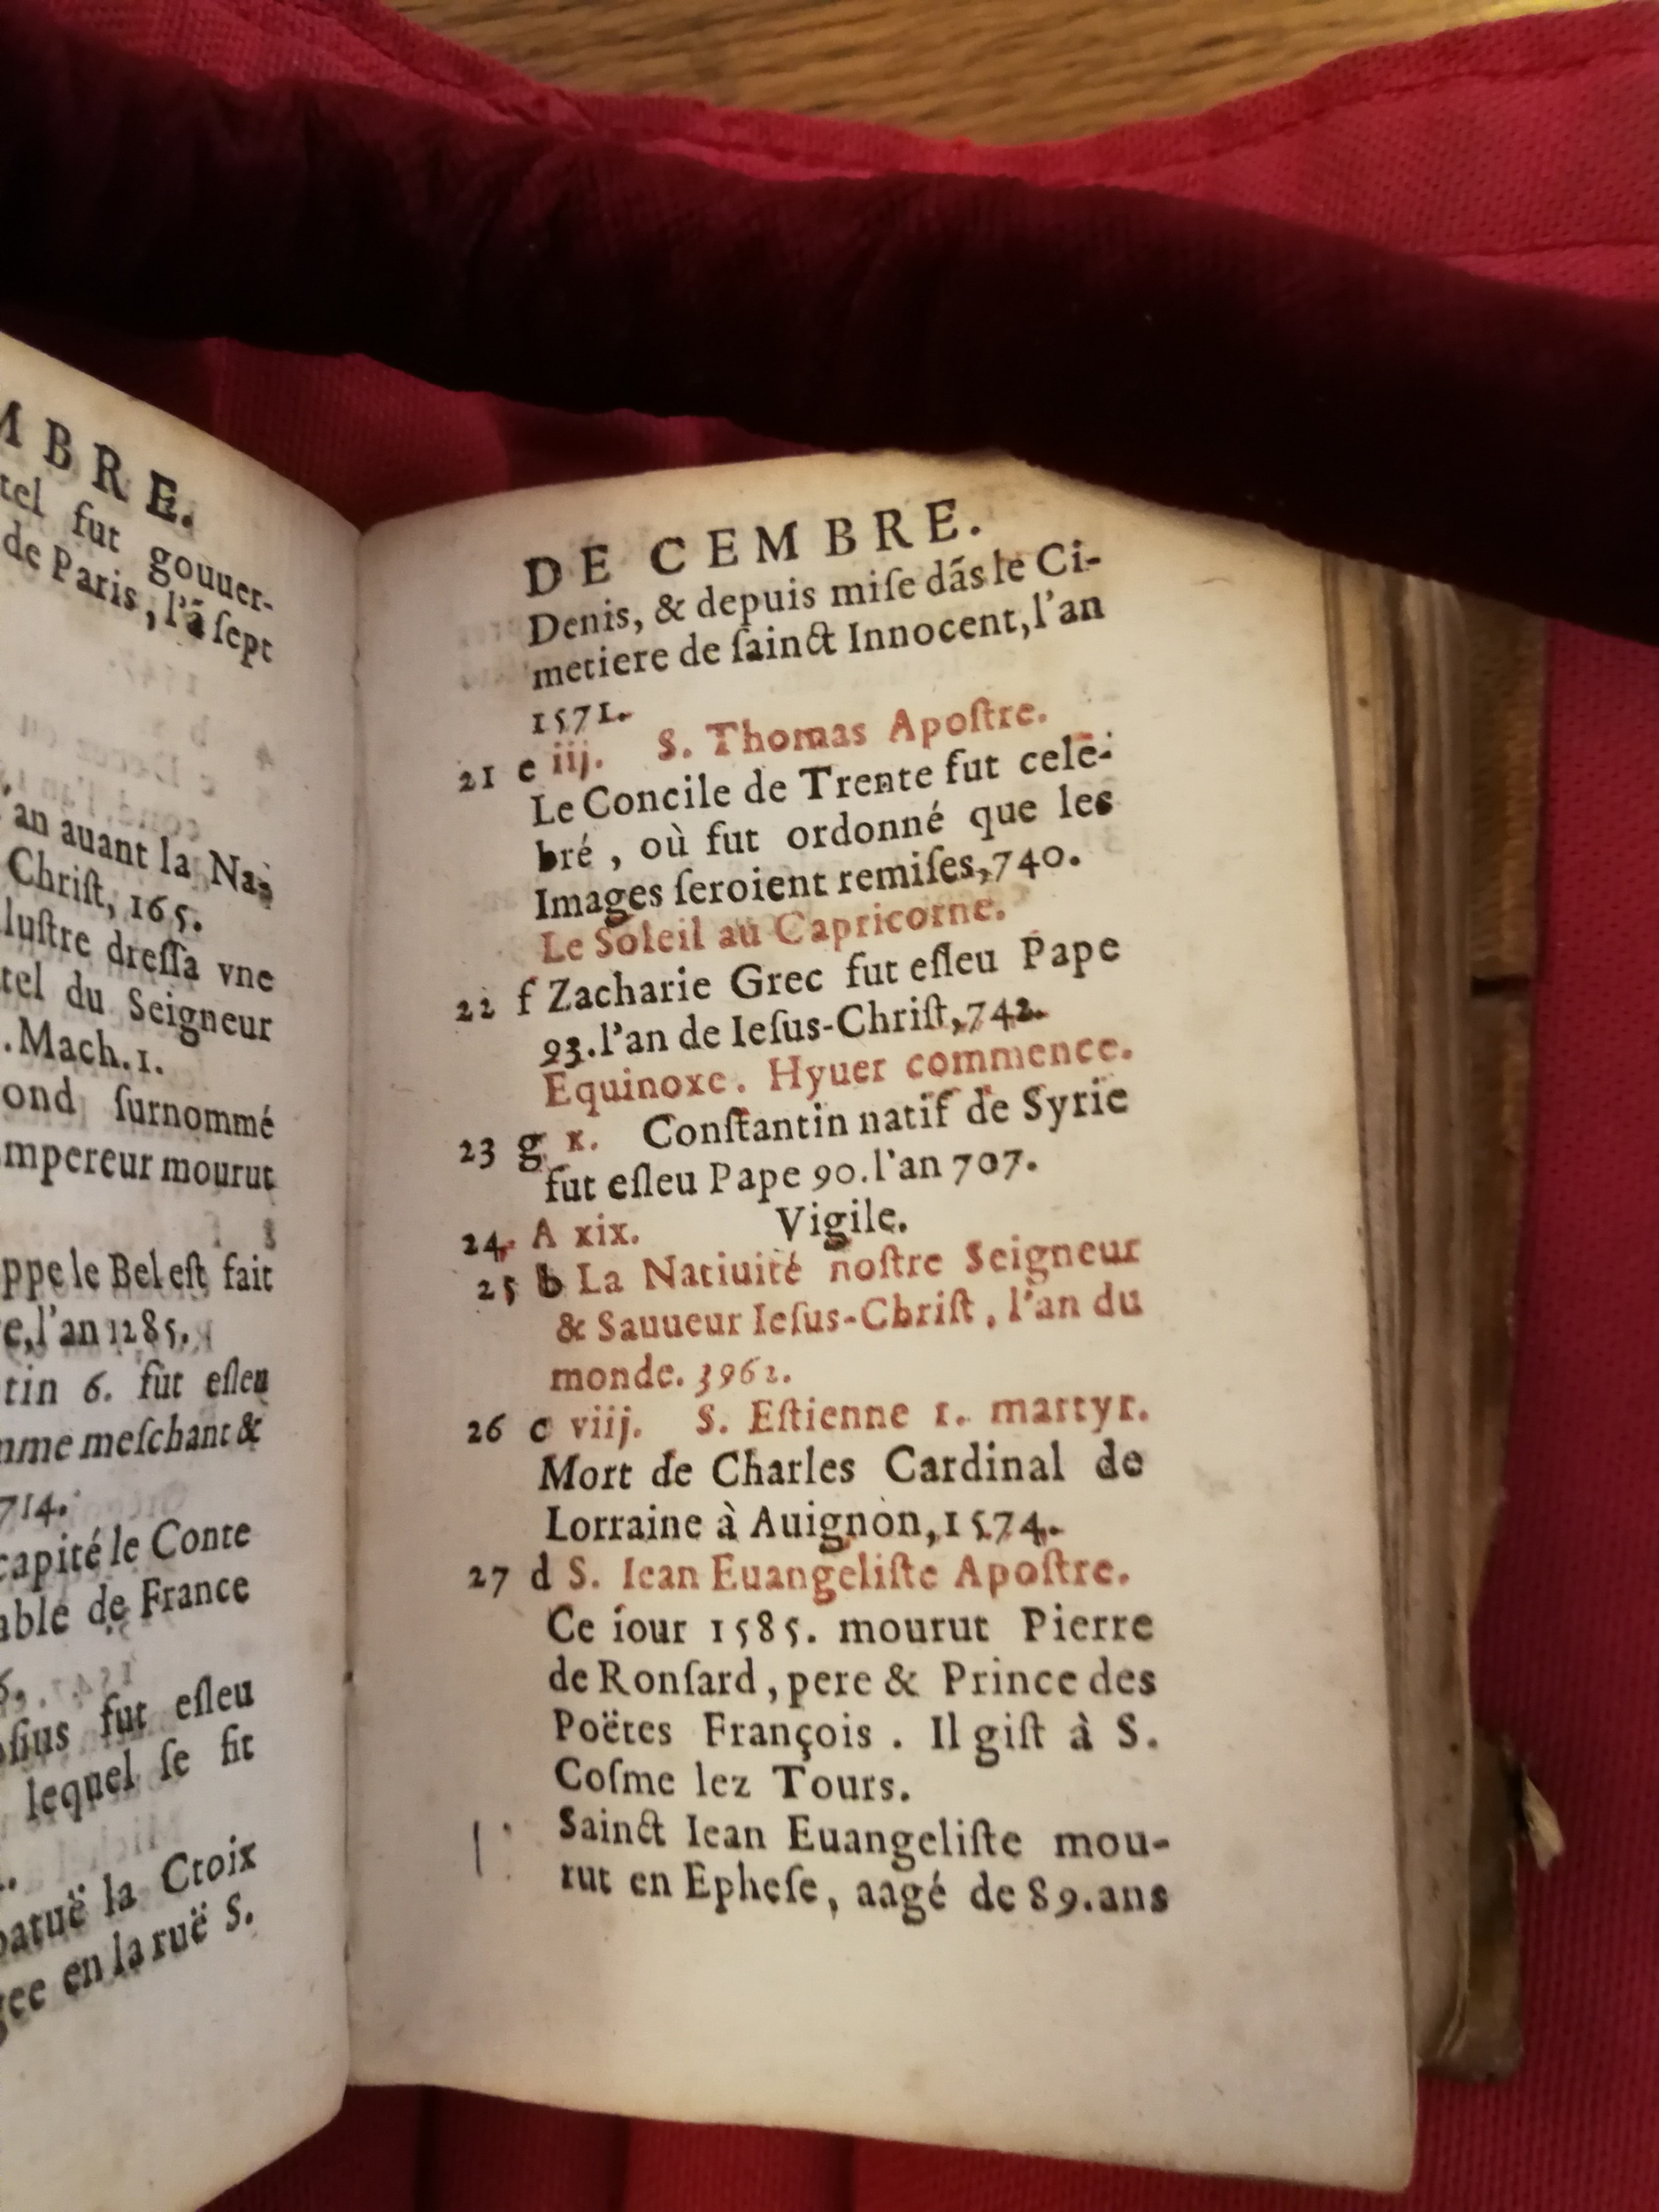 MBRE.
tel fut gouuer-
de Paris, l'ã ſept
an auant la Na-
Chriſt, 165.
luſtre dreſſa vne
tel du Seigneur
.Mach.1.
ond ſurnommé
mpereur mourut
ppe le Bel eſt fait
e, l'an 1285.
tin 6. fut eſleu
mme meſchant &
714.
capité le Conte
able de France
ſius fut eſleu
lequel ſe fit
batuë la Ctoix
gee en la ruë S.
DECEMBRE.
Denis, & depuis miſe dãs le Ci-
metiere de ſainct Innocent, l'an
1571.
21 e iij. S. Thomas Apoſtre.
Le Concile de Trente fut cele-
bré, où fut ordonné que les
Images ſeroient remiſes, 740.
Le Soleil au Capricorne.
22 f Zacharie Grec fut eſleu Pape
93. l'an de Ieſus-Chriſt, 742.
Equinoxe. Hyuer commence.
23 g x. Conſtantin natif de Syrie
fut eſleu Pape 90. l'an 707.
24 A xix. Vigile.
25 b La Natiuité noſtre Seigneur
& Sauueur Ieſus-Chriſt, l'an du
monde. 3962.
26 c viij. S. Eſtienne 1. martyr.
Mort de Charles Cardinal de
Lorraine à Auignon, 1574.
27 d S. Iean Euangeliſte Apoſtre.
Ce iour 1585. mourut Pierre
de Ronſard, pere & Prince des
Poëtes François. Il giſt à S.
Coſme lez Tours.
Sainct Iean Euangeliſte mou-
rut en Epheſe, aagé de 89. ans